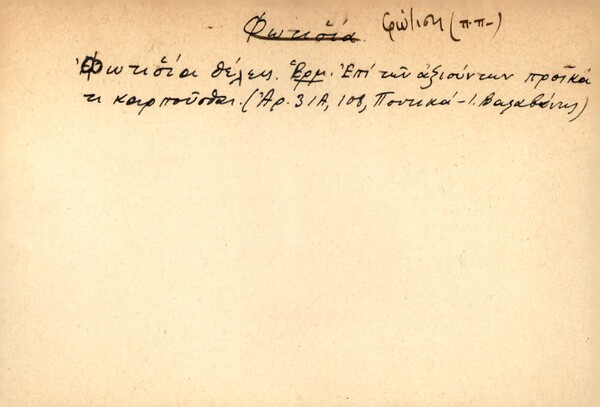 Φωτιδία. φώτιση (π.π-)
Φωτιδίαι θέλεις. Ἑρμ. Ἐπί τῶν ἀξιούντων προῖκά
τι καρποῦσθαι. (Ἀρ. 31Α, 108, Ποντικά - Ι. Βαλαβάνης)